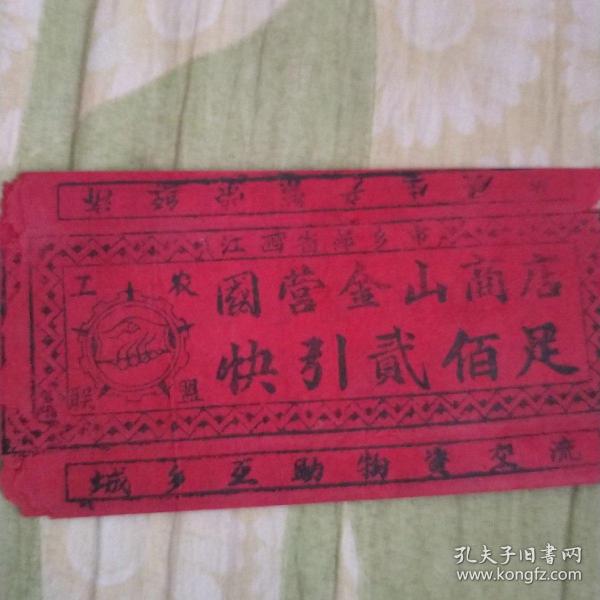 江西省萍乡市
工农
联盟
國营金山商店
快引貳佰足
城乡互助物資交流
孔夫子旧书网
www.kongfz.com